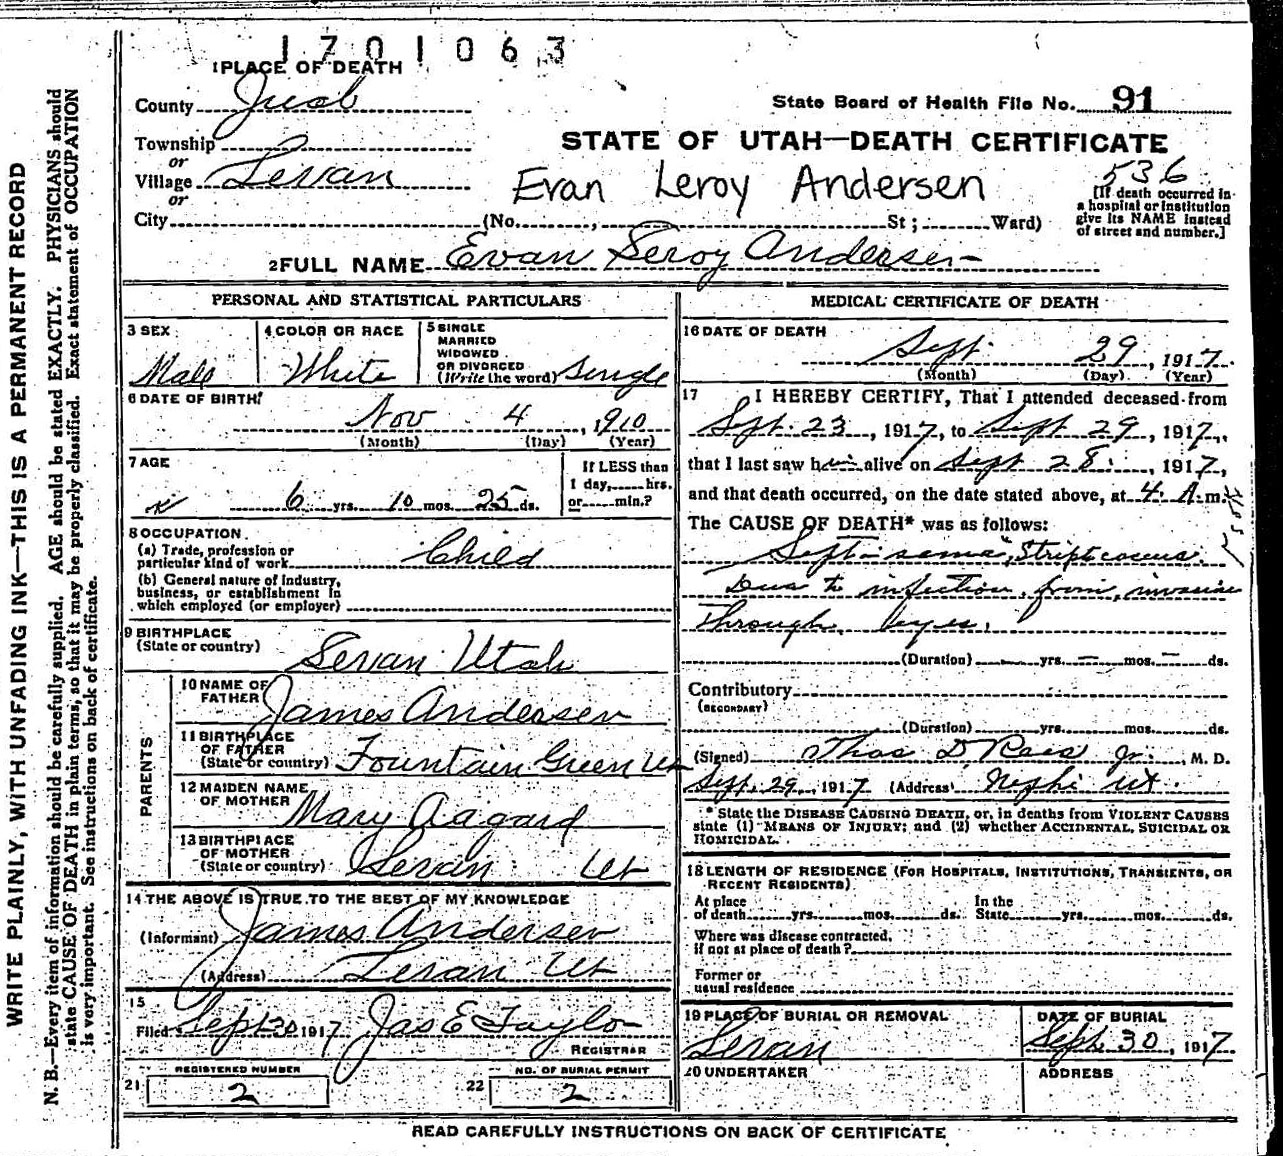 1701063
1 PLACE OF DEATH
County Juab
State Board of Health File No. 91
Township
STATE OF UTAH—DEATH CERTIFICATE
or
Village Levan
Evan Leroy Andersen
536
or
[If death occurred in
a hospital or institution
give its NAME instead
of street and number.]
City (No. , St; Ward)
2 FULL NAME Evan Leroy Andersen
PERSONAL AND STATISTICAL PARTICULARS
3 SEX
Male
4 COLOR OR RACE
White
5 SINGLE
MARRIED
WIDOWED
OR DIVORCED
(Write the word) Single
6 DATE OF BIRTH
Nov 4, 1910
(Month) (Day) (Year)
7 AGE
6 yrs. 10 mos. 25 ds.
If LESS than
1 day, hrs.
or min.?
8 OCCUPATION
(a) Trade, profession or
particular kind of work Child
(b) General nature of industry,
business, or establishment in
which employed (or employer)
9 BIRTHPLACE
(State or country)
Levan Utah
PARENTS
10 NAME OF
FATHER
James Andersen
11 BIRTHPLACE
OF FATHER
(State or country) Fountain Green Ut
12 MAIDEN NAME
OF MOTHER
Mary Aagard
13 BIRTHPLACE
OF MOTHER
(State or country) Levan Ut
14 THE ABOVE IS TRUE TO THE BEST OF MY KNOWLEDGE
(Informant) James Andersen
(Address) Levan Ut
15
Filed Sept 30 1917 Jas E Taylor
REGISTRAR
21 REGISTERED NUMBER
2
22 NO. OF BURIAL PERMIT
2
MEDICAL CERTIFICATE OF DEATH
16 DATE OF DEATH
Sept 29, 1917.
(Month) (Day) (Year)
17 I HEREBY CERTIFY, That I attended deceased from
Sept. 23, 1917, to Sept 29, 1917,
that I last saw him alive on Sept 28, 1917,
and that death occurred, on the date stated above, at 4 A m.
The CAUSE OF DEATH* was as follows:
Septisema, Striptcoccus.
Due to infection from, invasion
Through eyes.
(Duration) — yrs. — mos. — ds.
Contributory
(SECONDARY)
(Duration) yrs. mos. ds.
(Signed) Thos D. Rees Jr., M. D.
Sept. 29, 1917 (Address) Nephi Ut.
*State the DISEASE CAUSING DEATH, or, in deaths from VIOLENT CAUSES
state (1) MEANS OF INJURY; and (2) whether ACCIDENTAL, SUICIDAL OR
HOMICIDAL.
18 LENGTH OF RESIDENCE (FOR HOSPITALS, INSTITUTIONS, TRANSIENTS, OR
RECENT RESIDENTS)
At place
of death yrs. mos. ds.
In the
State yrs. mos. ds.
Where was disease contracted,
if not at place of death?
Former or
usual residence
19 PLACE OF BURIAL OR REMOVAL
Levan
DATE OF BURIAL
Sept. 30, 1917.
20 UNDERTAKER
ADDRESS
READ CAREFULLY INSTRUCTIONS ON BACK OF CERTIFICATE
WRITE PLAINLY, WITH UNFADING INK—THIS IS A PERMANENT RECORD
N. B.—Every item of information should be carefully supplied. AGE should be stated EXACTLY. PHYSICIANS should
state CAUSE OF DEATH in plain terms, so that it may be properly classified. Exact statement of OCCUPATION
is very important. See instructions on back of certificate.